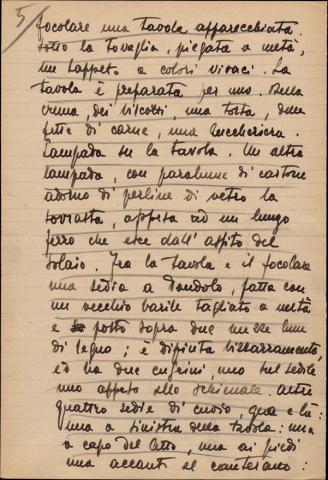 5
focolare una tavola apparecchiata
sotto la tovaglia, piegata a metà,
un tappeto a colori vivaci. La
tavola è preparata per uno. Della
crema, dei biscotti, una torta, due
fette di carne, una zuccheriera.
Lampada su la tavola. Un'altra
lampada, con paralume di cartone
adorno di perline di vetro la
sovrasta, appesa ad un lungo
ferro che esce dall'assito del
solaio. Fra la tavola e il focolare
una sedia a dondolo, fatta con
un vecchio barile tagliato a metà
e posto sopra due mezze lune
di legno; è dipinta bizzarramente,
ed ha due cuscini, uno sul sedile
uno appeso allo schienale. Altre
quattro sedie di cuoio, qua e là:
una a sinistra della tavola: una
a capo del letto, una ai piedi
una accanto al canterano: